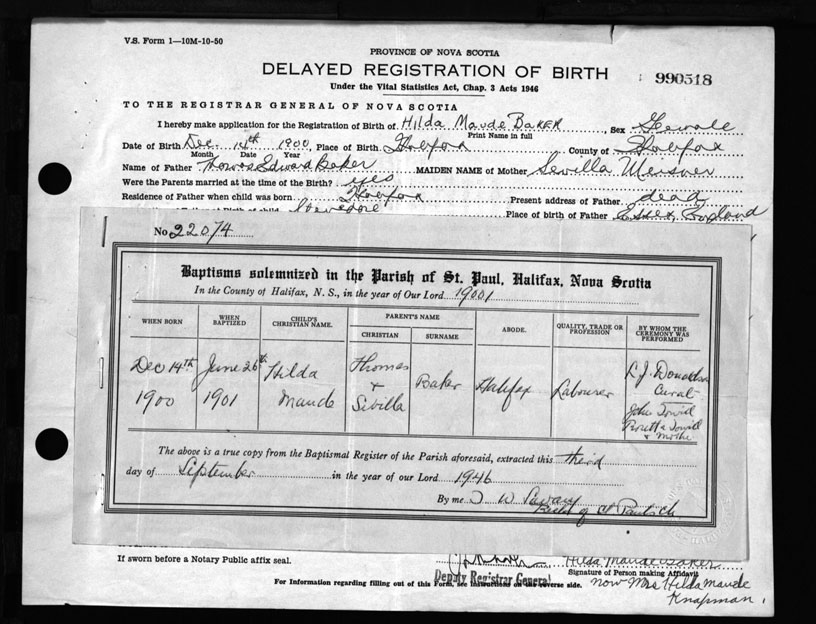 V.S. Form 1—10M-10-50
PROVINCE OF NOVA SCOTIA
DELAYED REGISTRATION OF BIRTH
990518
Under the Vital Statistics Act, Chap. 3 Acts 1946
TO THE REGISTRAR GENERAL OF NOVA SCOTIA
I hereby make application for the Registration of Birth of Hilda Maude Baker, Sex Female
Print Name in full
Date of Birth Dec. 14th 1900, Place of Birth Halifax County of Halifax
Month Date Year
Name of Father Thomas Edward Baker MAIDEN NAME of Mother Sevilla Meisner
Were the Parents married at the time of the Birth? yes
Residence of Father when child was born Halifax Present address of Father dead
Stevedore Place of Birth of Father Essex, England
No 22074
Baptisms solemnized in the Parish of St. Paul, Halifax, Nova Scotia
In the County of Halifax, N. S., in the year of Our Lord 19001
WHEN BORN WHEN BAPTIZED CHILD'S CHRISTIAN NAME. PARENT'S NAME CHRISTIAN SURNAME ABODE. QUALITY, TRADE OR PROFESSION BY WHOM THE CEREMONY WAS PERFORMED
Dec 14th 1900 June 26th 1901 Hilda Maude Thomas & Sevilla Baker Halifax Labourer
Curate
John
& Mother
The above is a true copy from the Baptismal Register of the Parish aforesaid, extracted this third
day of September in the year of our Lord 1946
By me W Savary
Rector of St Paul's Ch
If sworn before a Notary Public affix seal.
Hilda Maude Baker
Signature of Person making Affidavit
Deputy Registrar General
For Information regarding filling out of this Form, see instructions on the reverse side.
now Mrs Hilda Maude
Knapman.